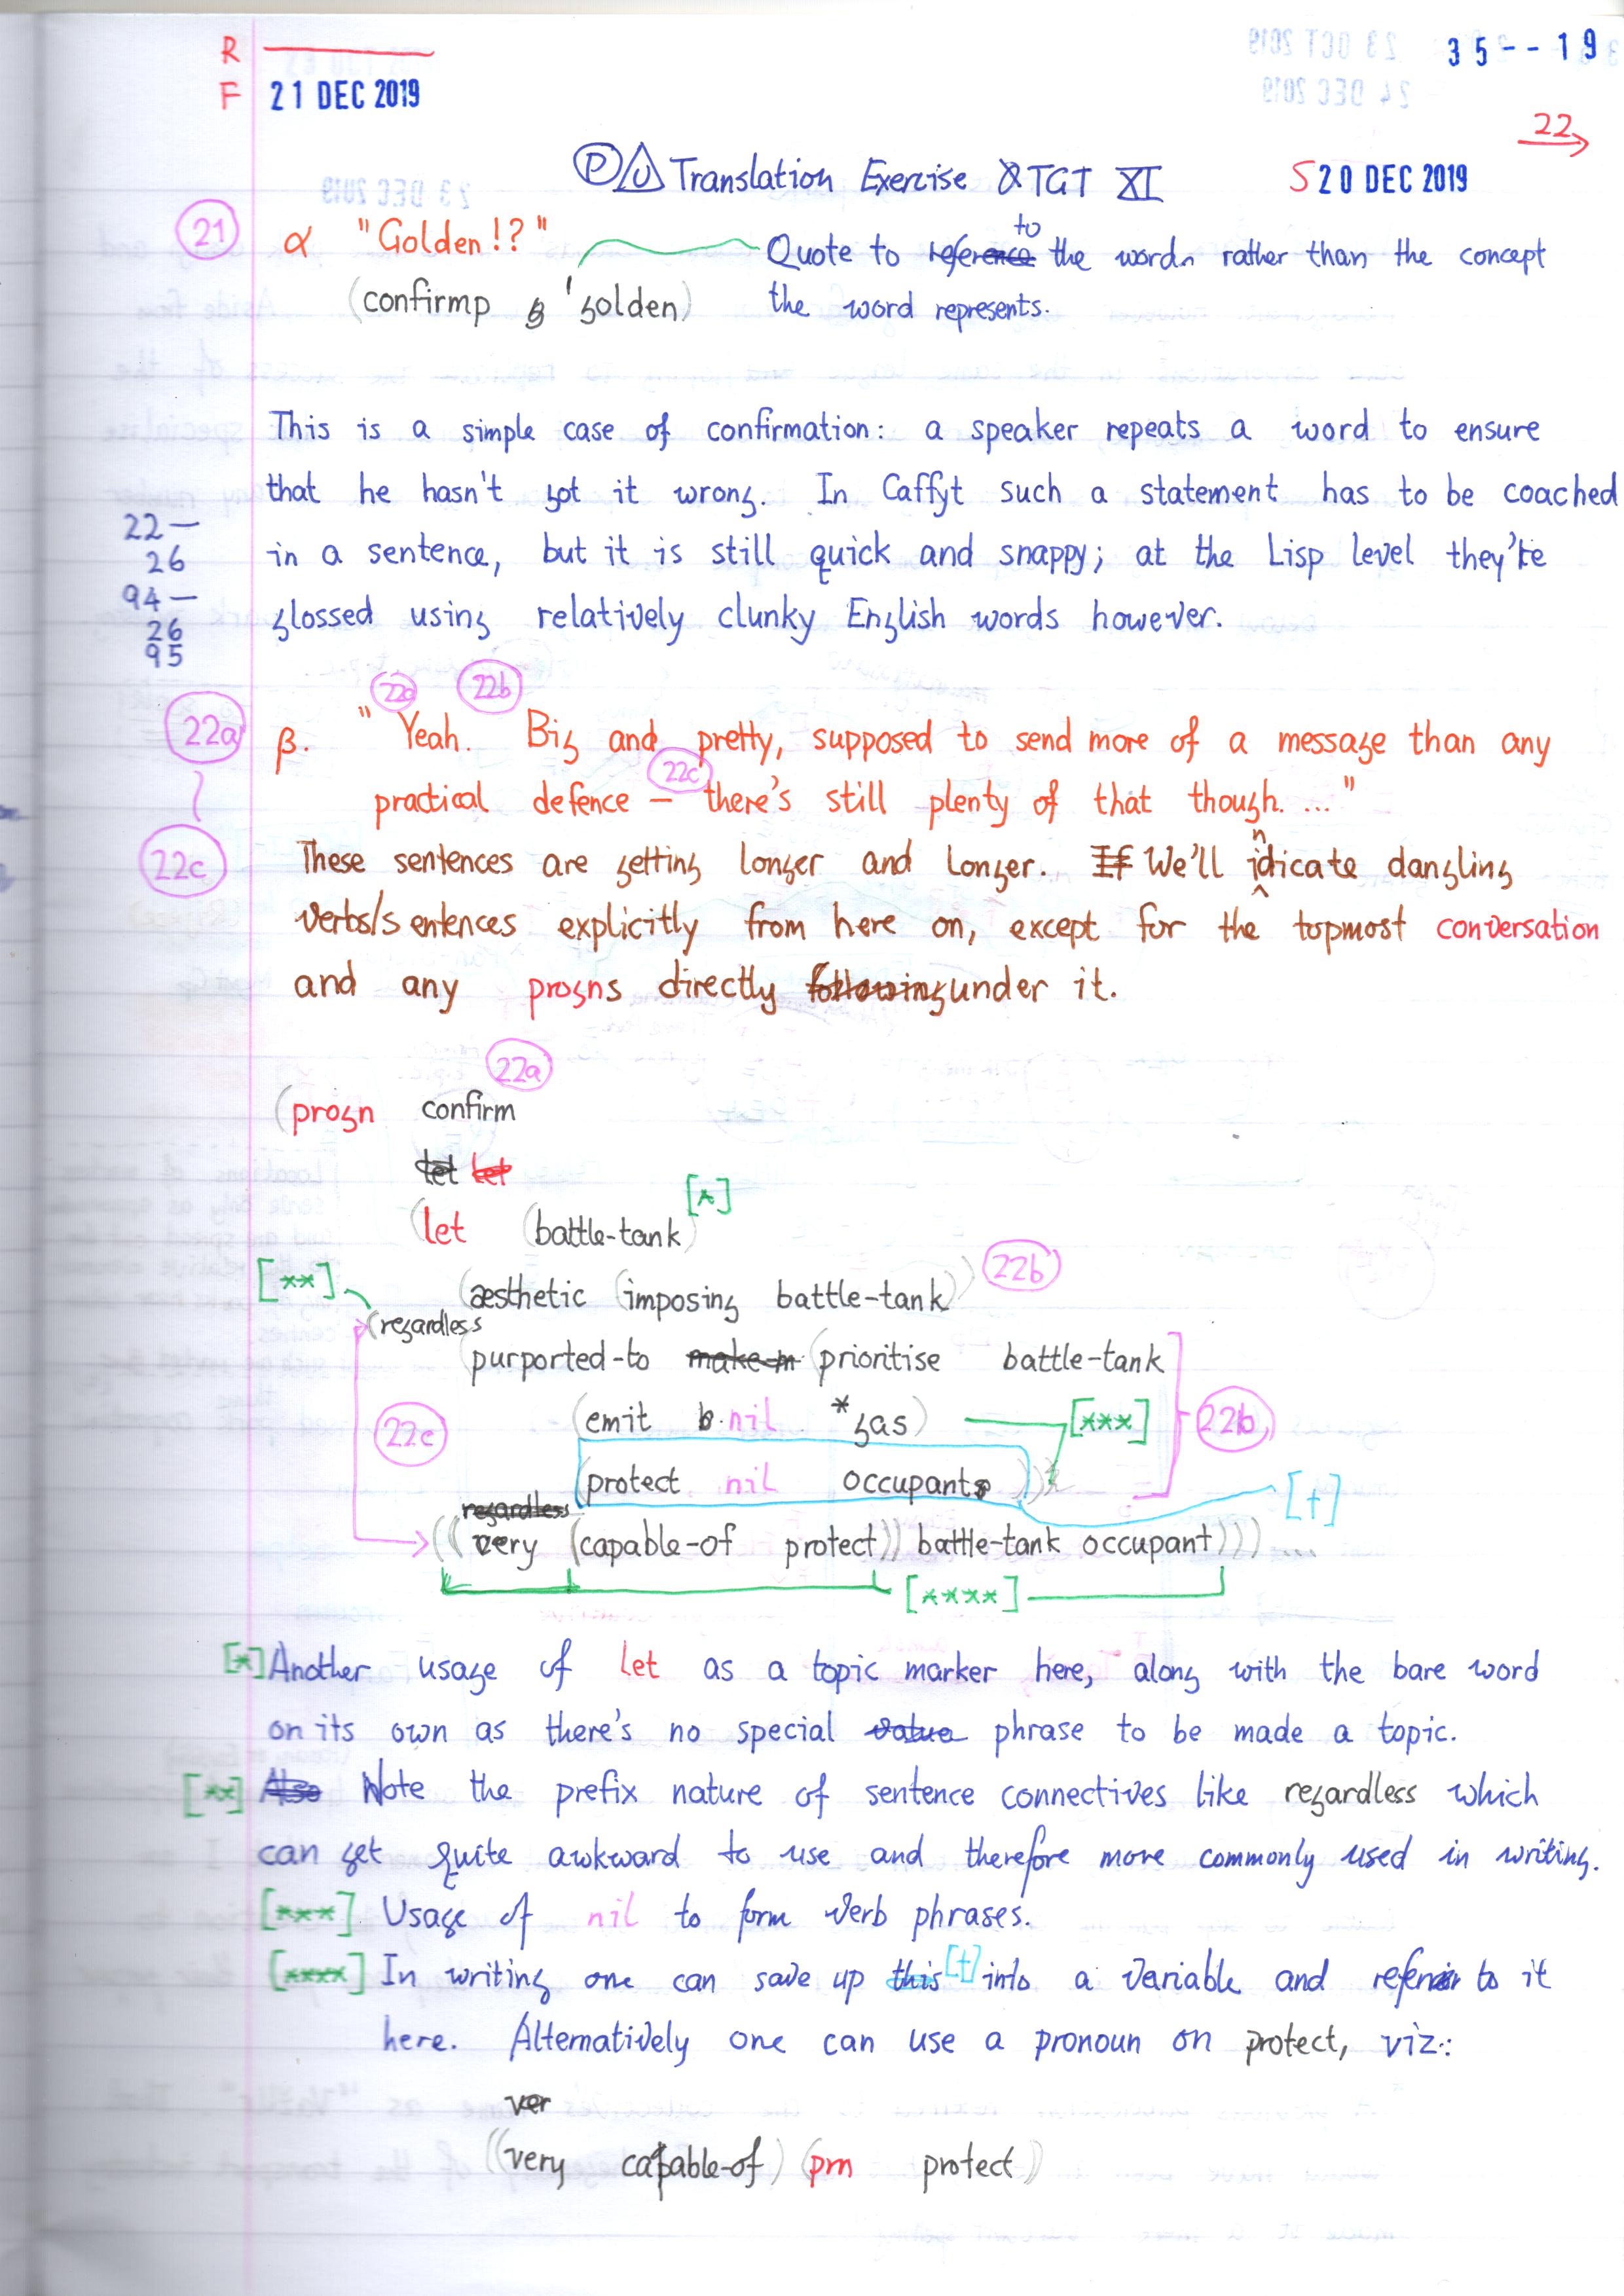 R
F 21 DEC 2019
35--19
22
P U Translation Exercise & TGT XI S 20 DEC 2019
21 α "Golden!?" Quote to reference to the word rather than the concept
(confirmp 'golden) the word represents.
This is a simple case of confirmation: a speaker repeats a word to ensure
that he hasn't got it wrong. In Caffyt such a statement has to be coached
22— in a sentence, but it is still quick and snappy; at the Lisp level they're
26
94— glossed using relatively clunky English words however.
26
95
22a 22b
22a β. "Yeah. Big and pretty, supposed to send more of a message than any
22c
practical defence — there's still plenty of that though. ..."
22c These sentences are getting longer and longer. If We'll indicate dangling
verbs/sentences explicitly from here on, except for the topmost conversation
and any progns directly following under it.
22a
(progn confirm
let let
(let (battle-tank) [*]
[**] (aesthetic (imposing battle-tank)) 22b
(regardless
(purported-to make-m (prioritise battle-tank
22c (emit nil *gas) [***] 22b
(protect nil occupant)))
regardless [†]
((very (capable-of protect)) battle-tank occupant)))
[****]
[*] Another usage of let as a topic marker here, along with the bare word
on its own as there's no special value phrase to be made a topic.
[**] Also Note the prefix nature of sentence connectives like regardless which
can get quite awkward to use and therefore more commonly used in writing.
[***] Usage of nil to form verb phrases.
[****] In writing one can save up this [†] into a variable and refer to it
here. Alternatively one can use a pronoun on protect, viz.:
ver
((very capable-of) (prn protect)